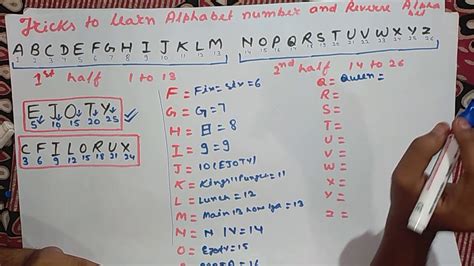 Tricks to learn Alphabet number and Reverse Alpha
A B C D E F G H I J K L M N O P Q R S T U V W X Y Z
1 2 3 4 5 6 7 8 9 10 11 12 13 14 15 16 17 18 19 20 21 22 23 24 25 26
1st half 1 to 13
2nd half 14 to 26
E J O T Y
5 10 15 20 25
C F I L O R U X
3 6 9 12 15 18 21 24
F = Fix = six = 6
G = G = 7
H = H = 8
I = 9 = 9
J = 10 (EJOTY)
K = 11
L = Lunch = 12
M = Main 13 = 13
N = N IV = 14
O = EJOTY = 15
= 16
Q = Queen =
R =
S =
T =
U =
V =
W =
X =
Y =
Z =